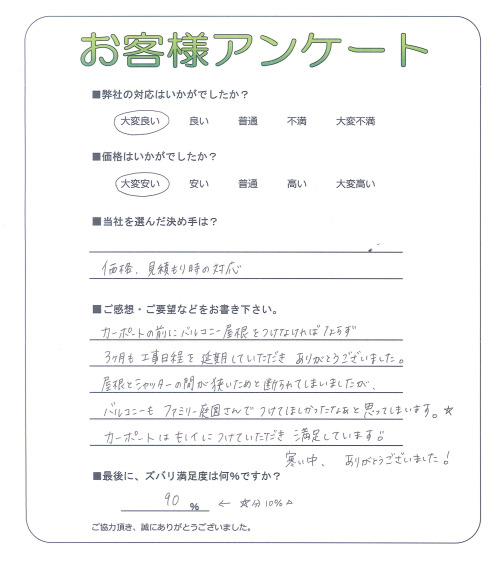 お客様アンケート
■弊社の対応はいかがでしたか？
大変良い 良い 普通 不満 大変不満
■価格はいかがでしたか？
大変安い 安い 普通 高い 大変高い
■当社を選んだ決め手は？
価格、見積もり時の対応
■ご感想・ご要望などをお書き下さい。
カーポートの前にバルコニー屋根をつけなければならず
3ヶ月も工事日程を延期していただき ありがとうございました。
屋根とシャッターの間が狭いためと断られてしまいましたが、
バルコニーも ファミリー庭園さんで つけてほしかったなぁと思ってしまいます。☆
カーポートは キレイにつけていただき 満足しています!!
寒い中、 ありがとうございました!
■最後に、ズバリ満足度は何%ですか？
90 % ← ☆分10%△
ご協力頂き、誠にありがとうございました。